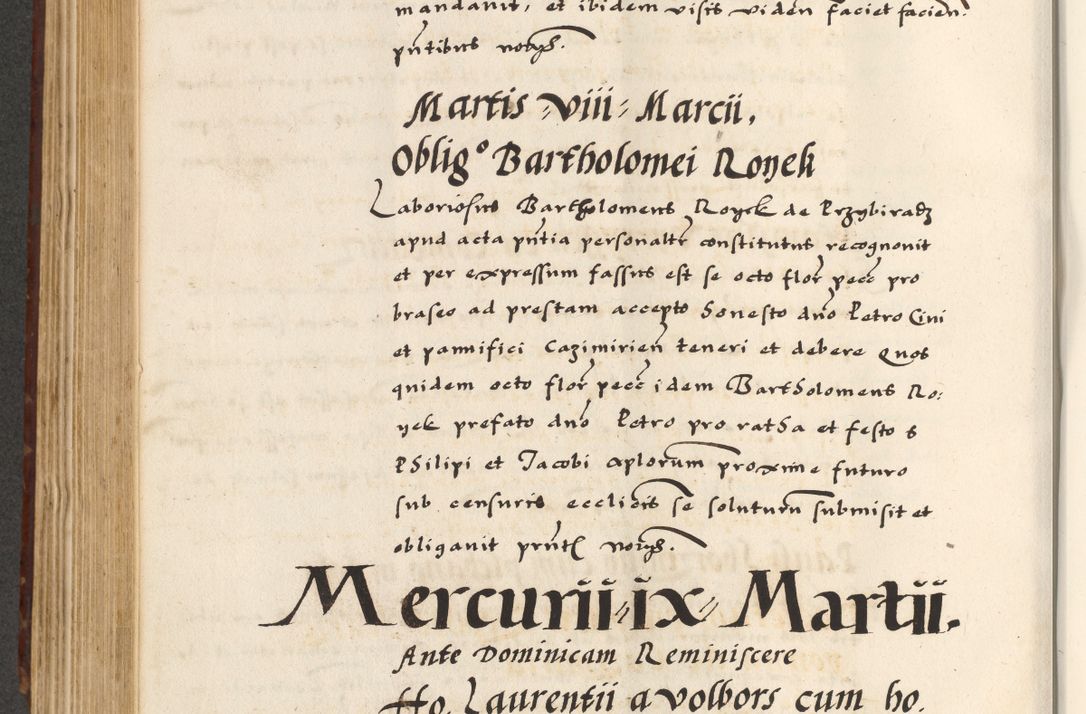 mandavit, et ibidem visis viden faciet facien.
pntibus notys.
Martis viii Marcii.
Oblig° Bartholomei Royek
Laboriosus Bartholomeus Royek de Przybiradz
apud acta pntia personalr constitutus recognovit
et per expressum fassus est se octo flor pecc pro
braseo ad prestam accepto honesto dno Petro Civi
et pannifici Cazimirien teneri et debere Quos
quidem octo flor pecc idem Bartholomeus Ro:
yek prefato dno Petro pro ratha et festo s
Philipi et Jacobi aplorum proxime futuro
sub censuris ecclicis se soluturum submisit et
obligavit prnt notys.
Mercurii ix Martii.
Ante Dominicam Reminiscere
Ho. Laurentii a Volbors cum ho.